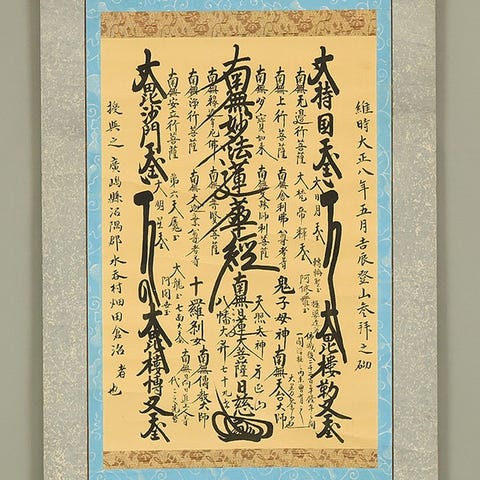 維時大正八年五月吉辰登山参拝之砌
大持国天王
大毘樓勒叉天王
南無無邊行菩薩
大日天王
轉輪聖王
南無上行菩薩
大梵帝釋天王
阿修羅王
南無多寶如来
南無舎利弗尊者等
鬼子母神
南無天台大師
天照太神
身延山
南無妙法蓮華經
南無日蓮大菩薩
日慈
八幡大菩薩
七十九世
南無釋迦牟尼佛
十羅刹女
南無傳教大師
南無浄行菩薩
南無安立行菩薩
第六天魔王
大明星天王
大龍王
阿闍世王
大毘沙門天王
大毘樓博叉天王
授與之 廣嶋縣沼隅郡水呑村畑田倉治者也